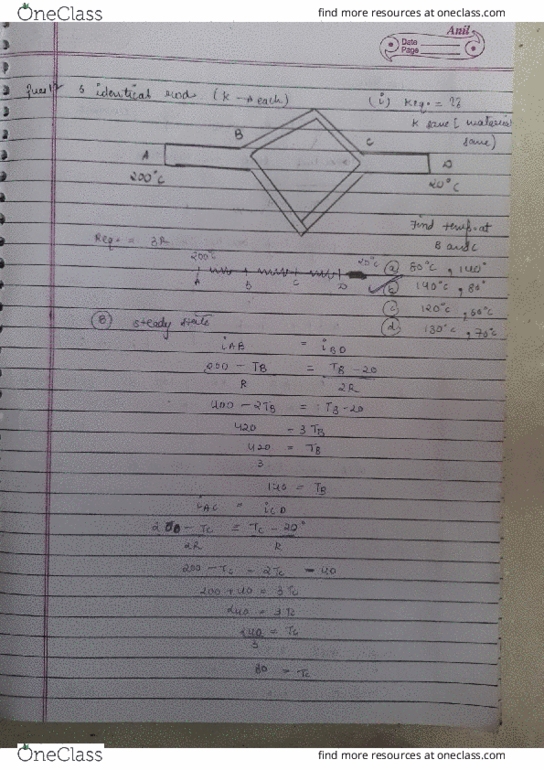 OneClass
find more resources at oneclass.com
Anil
Date
Page
6 identical rod (K → each)
(i) Keq. = ??
K same [material
same)
B
C
A
D
200°C
20°C
Find temp. at
B and C
Req. = 3R
200°C
20°C
A
B
C
D
(a) 80°C, 140°
(b) 140°C, 80°
(c) 120°C, 60°C
(d) 130°C, 70°C
(B) steady state
iAB = iBD
200 - TB = TB - 20
R 2R
400 - 2TB = TB - 20
420 = 3TB
420 = TB
3
140 = TB
iAC = iCD
200 - TC = TC - 20°
2R R
200 - TC = 2TC - 40
200 + 40 = 3TC
240 = 3TC
240 = TC
3
80 = TC
OneClass
find more resources at oneclass.com